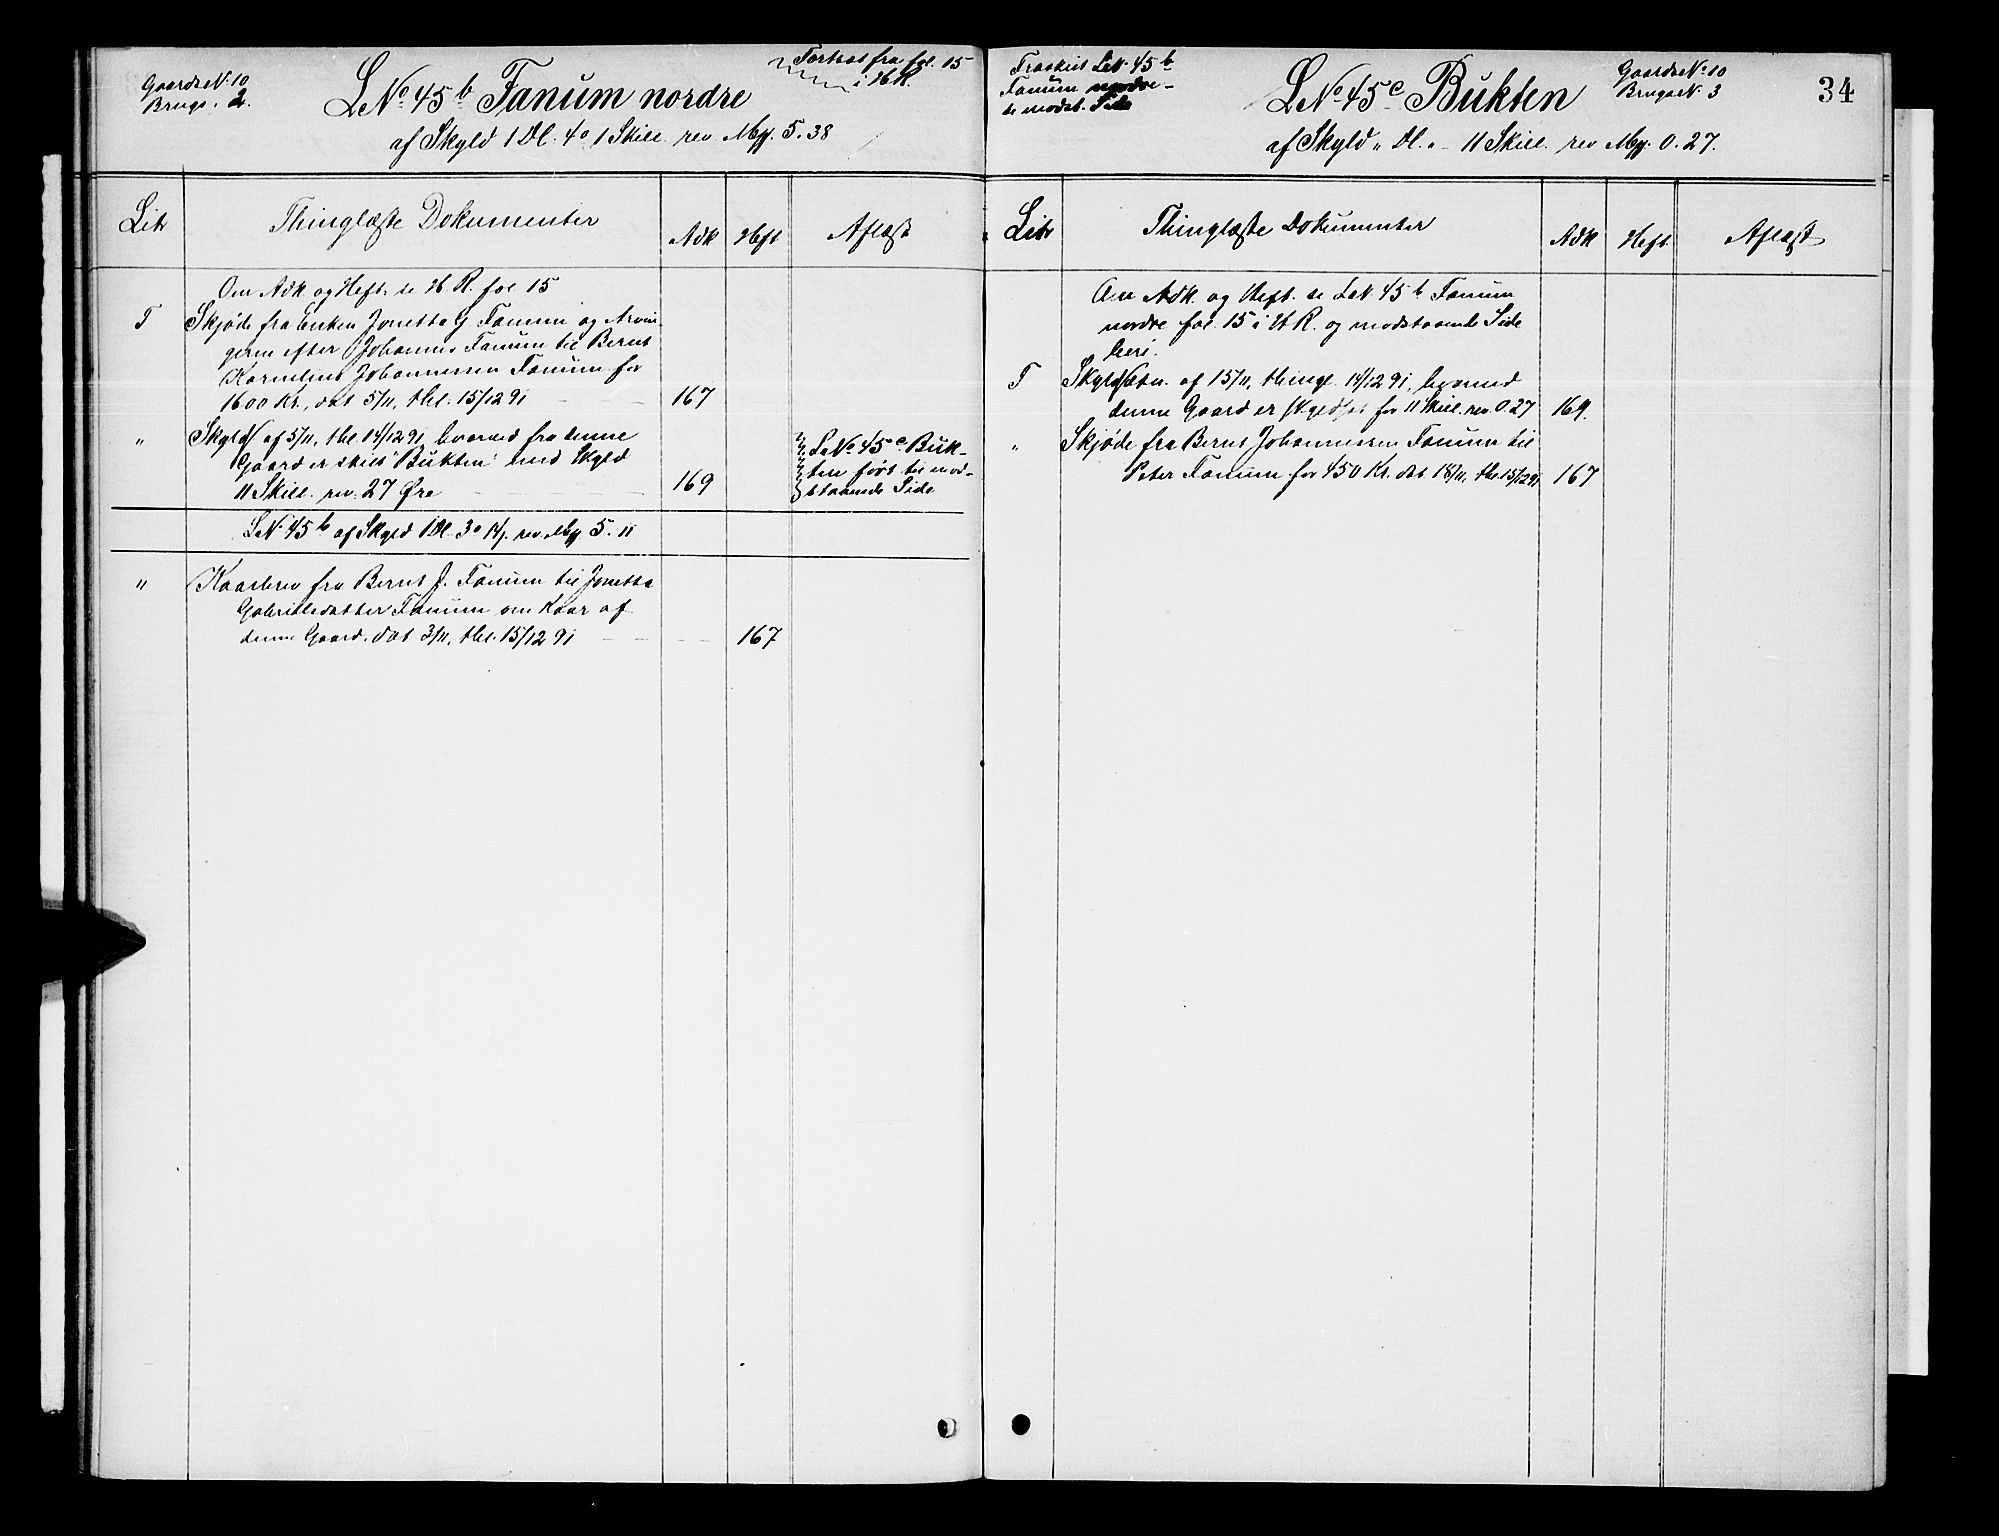 Gaards No 10
Brugs „ 2.
L No 45 b Fanum nordre
Fortsat fra fol. 15
i H.R.
af Skyld 1 Dl. 4 o 1 Skill. rev Mg. 5.38
Litr
Thinglæste Dokumenter
Adk
Heft
Aflæst
Om Adk og Heft. se H R. fol 15
T Skjøde fra Enken Jonetta G Fanum og Arvin-
gerne efter Johannes Fanum til Bernt
Kornelius Johannessen Fanum for
1600 Kr., dat 5/11, thl. 15/12 91 167
„ Skylds af 5/11, thl. 14/12 91, hvorved fra denne
Gaard er skilt "Bukten" med Skyld
11 Skill. rev. 27 Øre 169
L No 45 c Buk-
ten ført til mod-
staaende Side
L N 45 b af Skyld 1 Dl 3 o 14 s. rev. Mg 5.11
„ Kaarbrev fra Bernt J. Fanum til Jonetta
Gabrielsdatter Fanum om Kaar af
denne Gaard. dat 3/11, thl. 15/12 91 167
Fraskilt L N. 45 b
Fanum nordre
se modst. Side
L No 45 c Bukten
Gaards No 10
Brugs N. 3
34
af Skyld „ Dl. „ - 11 Skill. rev Mg. 0.27.
Litr
Thinglæste Dokumenter
Adk
Heft
Aflæst
Om Adk. og Heft. se L N 45 b Fanum
nordre fol. 15 i H R. og modstaaende Side
heri.
T Skylds af 15/11, thingl. 14/12 91, hvorved
denne Gaard er skyldsat for 11 Skill. rev. 0.27 169.
„ Skjøde fra Bernt Johannessen Fanum til
Peter Fanum for 450 Kr. dat. 18/11, thl. 15/12 91 167